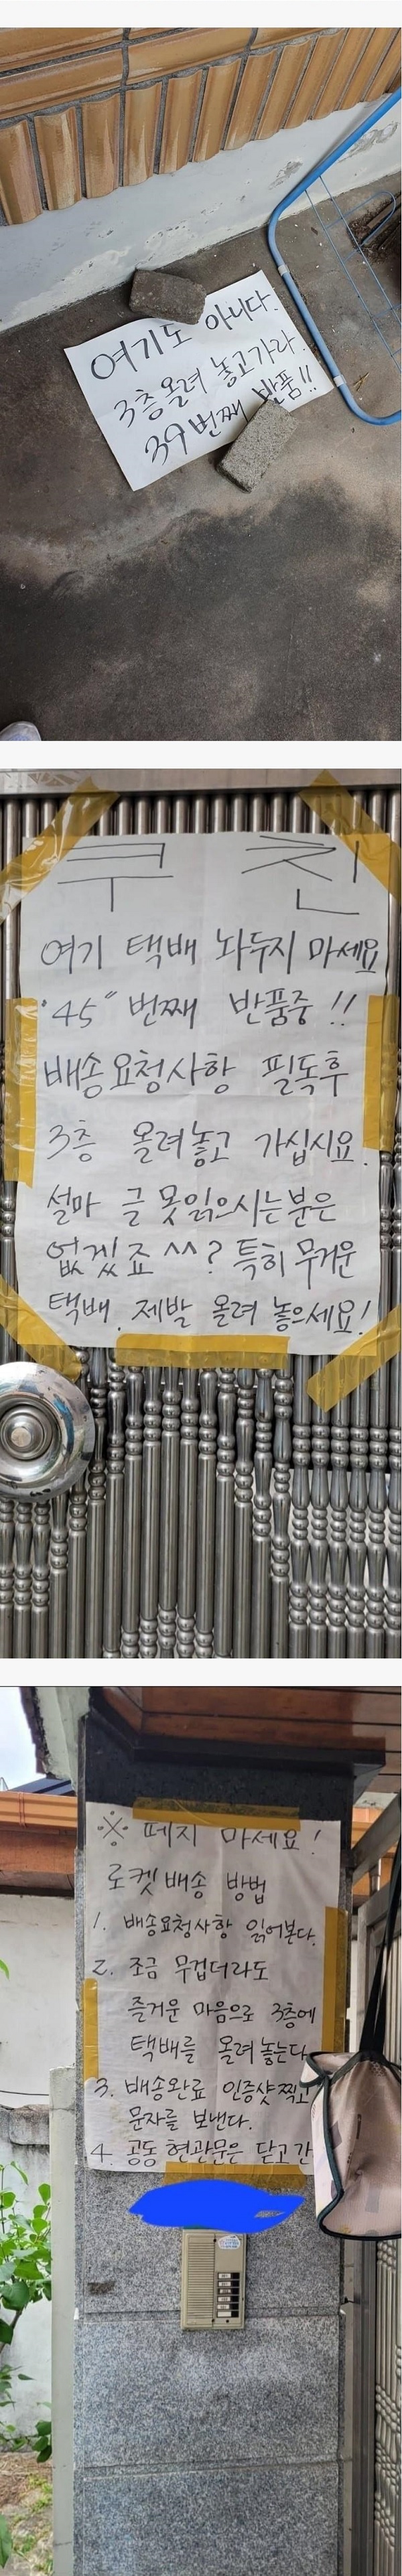 여기도 아니다.
3층올려 놓고가라.
39번째 반품!!
쿠 친
여기 택배 놔두지 마세요
"45" 번째 반품중 !!
배송요청사항 필독후
3층 올려놓고 가십시요.
설마 글 못읽으시는분은
없겠죠^^? 특히 무거운
택배. 제발 올려 놓으세요!
※ 떼지 마세요!
로켓배송 방법
1. 배송요청사항 읽어본다.
2. 조금 무겁더라도
즐거운 마음으로 3층에
택배를 올려놓는다.
3. 배송완료 인증샷찍고
문자를 보낸다.
4. 공동현관문은 닫고간